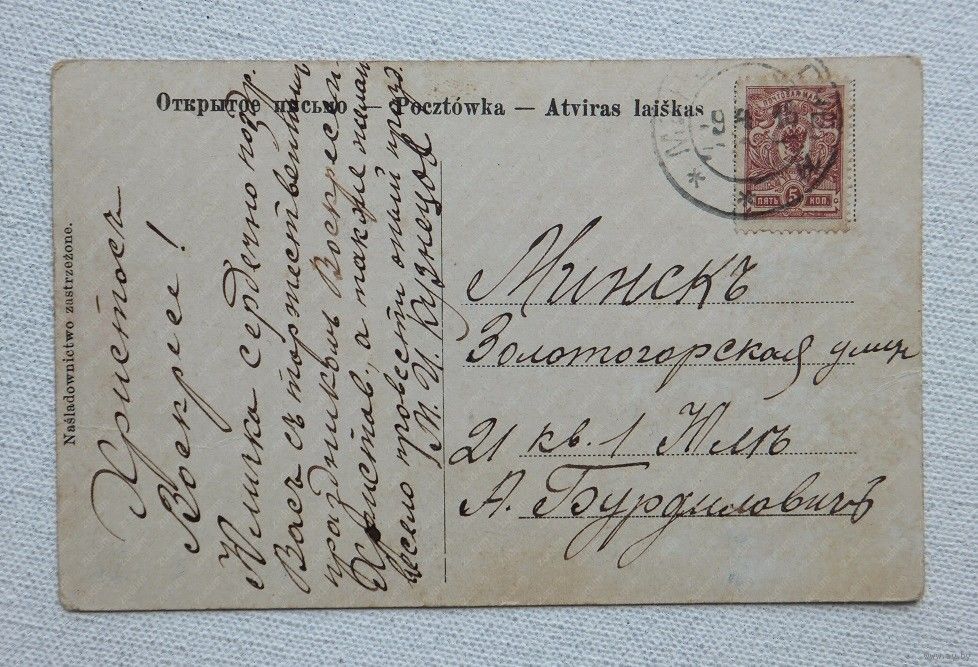 Открытое письмо — Pocztówka — Atviras laiškas
Naśladownictwo zastrzeżone.
Христосъ
Воскресе!
Юличка сердечно поздр.
Васъ съ торжественнымъ
праздникомъ Воскресен.
Христов, а также желаю
весело провести оный празд.
М. И. Кузнецов
ПЯТЬ 5 КОП.
Минскъ
Золотогорская улиц
21 кв. 1 Юлѣ
А. Бурдиловичъ